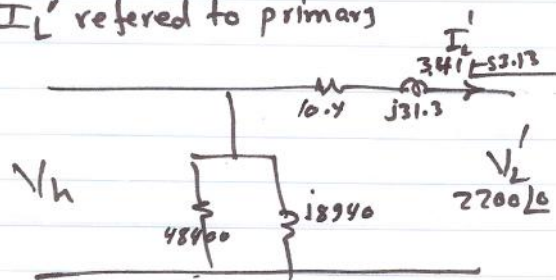 I_L' refered to primary
I_L'
3.41 ∠-53.13
10.4 j31.3
V_h
V_L'
2200∠0
48400
j8940